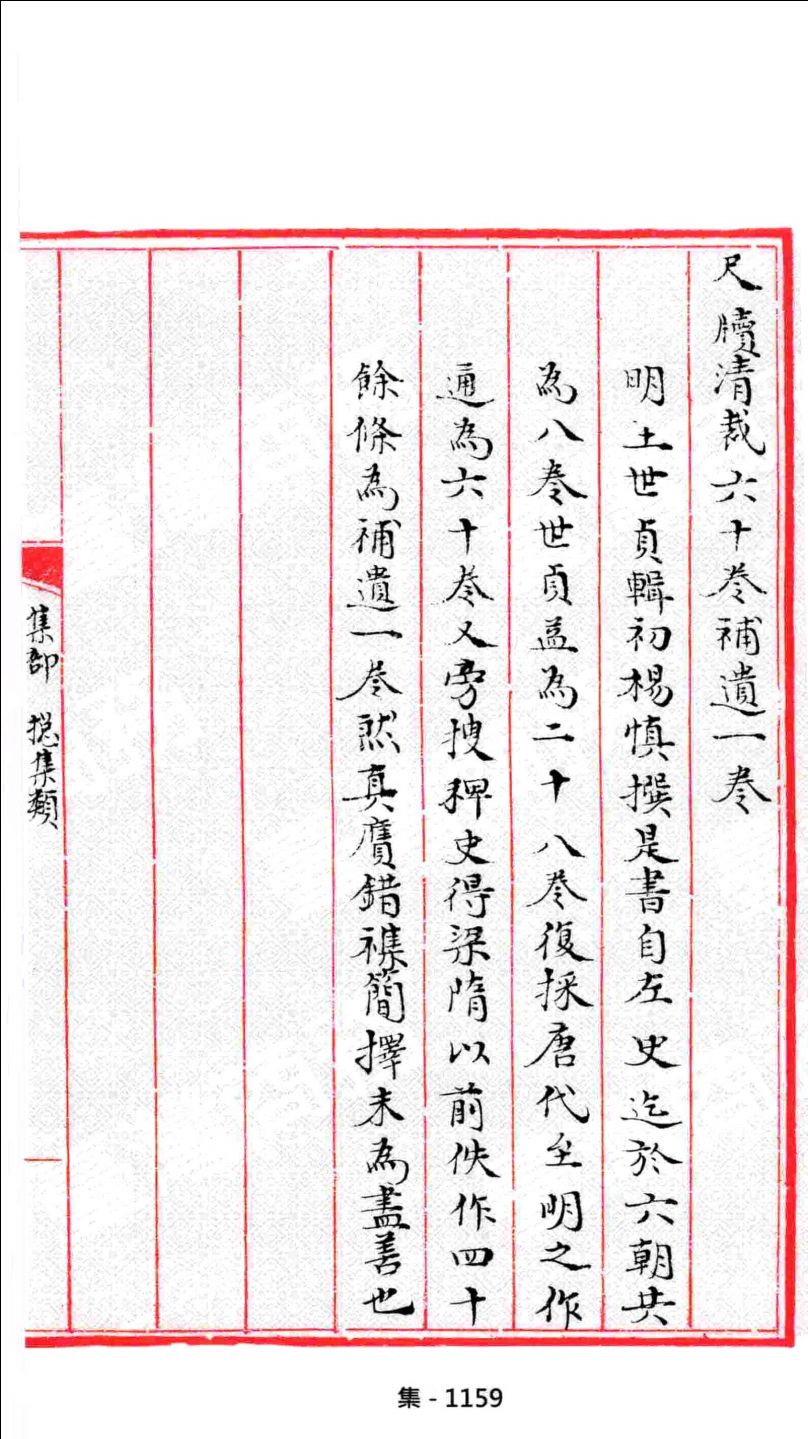 尺牘清裁六十卷補遺一卷
明王世貞輯初楊慎撰是書自左史迄於六朝共
為八卷世貞益為二十八卷復採唐代至明之作
通為六十卷又旁搜稗史得梁隋以前佚作四十
餘條為補遺一卷然真贋錯襍簡擇未為盡善也
集部 捴集類
集 - 1159